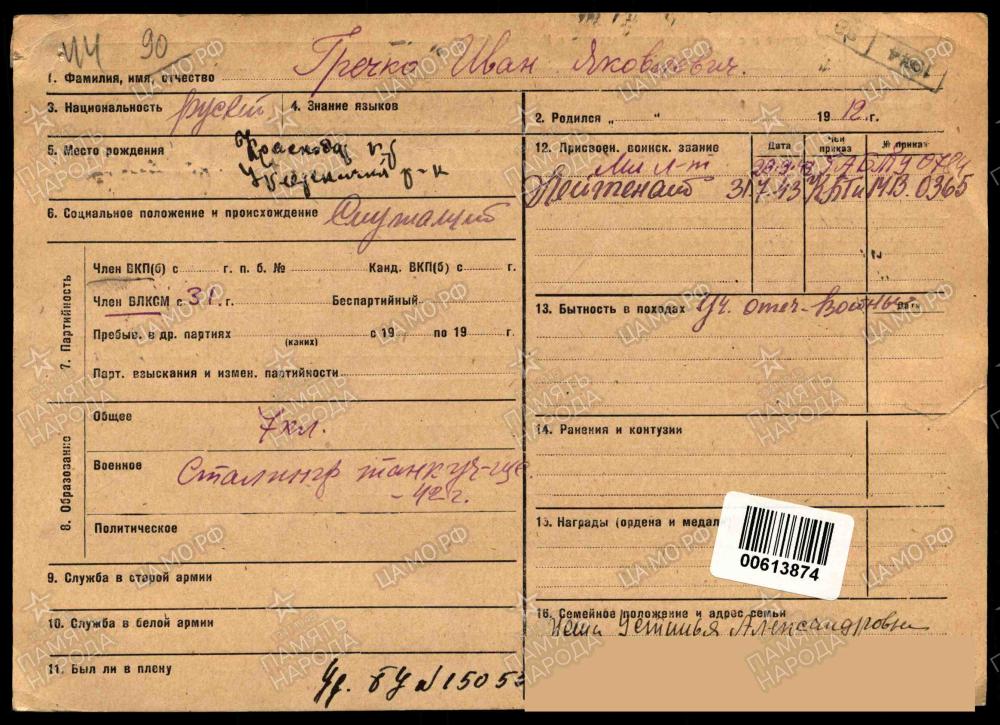 ИЧ 90
1. Фамилия, имя, отчество Гречко Иван Яковлевич.
3. Национальность русский 4. Знание языков
5. Место рождения Краснодар
р-н
6. Социальное положение и происхождение Служащий
7. Партийность
Член ВКП(б) с г. п. б. № Канд. ВКП(б) с г.
Член ВЛКСМ с 31 г. Беспартийный
Пребыв. в др. партиях с 19 по 19 г.
(каких)
Парт. взыскания и измен. партийности
8. Образование
Общее 7 кл.
Военное Сталингр танк уч-ще
- 42 г.
Политическое
9. Служба в старой армии
10. Служба в белой армии
11. Был ли в плену
Уд. БУ № 15055
2. Родился „ “ 1912 г.
12. Присвоен. воинск. звание Дата Чей приказ № приказа
Мл л-т
Лейтенант 31.7.43 0365
13. Бытность в походах Уч. отеч. войны Дата
14. Ранения и контузии
15. Награды (ордена и медал
00613874
16. Семейное положение и адрес семьи
Устинья Александровна
ПАМЯТЬ НАРОДА
ЦАМО.РФ